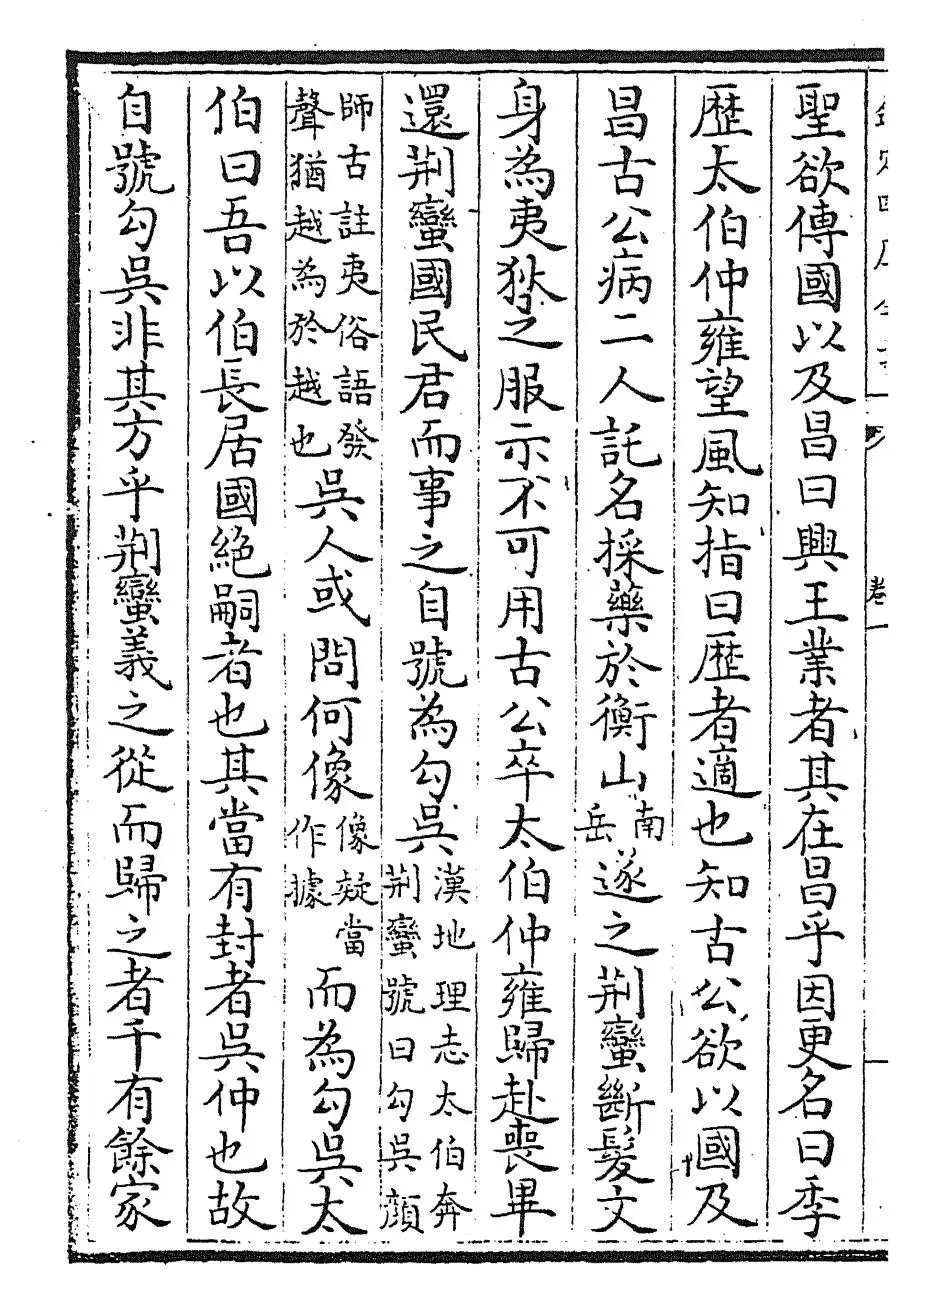 欽定四庫全書
卷一
聖欲傳國以及昌曰興王業者其在昌乎因更名曰季
歴太伯仲雍望風知指曰歴者適也知古公欲以國及
昌古公病二人託名採藥於衡山南岳遂之荆蠻斷髮文
身為夷狄之服示不可用古公卒太伯仲雍歸赴喪畢
還荆蠻國民君而事之自號為勾吳漢地理志太伯奔荆蠻號曰勾吳顔
師古註夷俗語發聲猶越為於越也吳人或問何像像疑當作據而為勾吳太
伯曰吾以伯長居國絶嗣者也其當有封者吳仲也故
自號勾吳非其方乎荆蠻義之從而歸之者千有餘家